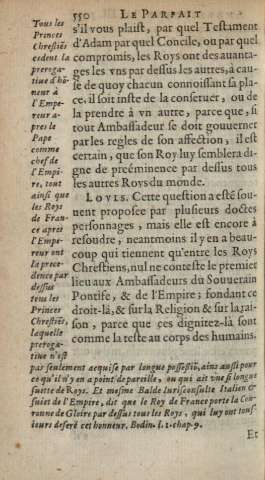 550 LE PARFAIT
s'il vous plaist, par quel Testament
d'Adam par quel Concile, ou par quel
compromis, les Roys ont des auanta-
ges les vns par dessus les autres, à cau-
se de quoy chacun connoissant sa pla-
ce, il soit inste de la conseruer, ou de
la prendre à vn autre, parce que, si
tout Ambassadeur se doit gouuerner
par les regles de son affection, il est
certain, que son Roy luy semblera di-
gne de preéminence par dessus tous
les autres Roys du monde.
LOVIS. Cette question a esté sou-
uent proposee par plusieurs doctes
personnages, mais elle est encore à
resoudre, neantmoins il y en a beau-
coup qui tiennent qu'entre les Roys
Chrestiens, nul ne conteste le premier
lieu aux Ambassadeurs du Souuerain
Pontife, & de l'Empire; fondant ce
droit-là, & sur la Religion & sur la rai-
son, parce que ces dignitez-là sont
comme la teste au corps des humains.
Tous les
Princes
Chrestiẽs
cedent la
preroga-
tiue d'hõ-
neur à
l'Empe-
reur a-
pres le
Pape
comme
chef de
l'Empi-
re, tout
ainsi que
les Roys
de Fran-
ce apres
l'Empe-
reur ont
la prece-
dence par
dessus
tous les
Princes
Chrestiẽs,
laquelle
preroga-
tiue n'est
pas seulement aequise par longue possessiõ, ains aussi pour
ce qu'il n'y en a point de pareille, ou qui ait vne si longue
suette de Roys. Et mesme Balde Iurisconsulte Italien &
suiet de l'Empire, dit que le Roy de France porte la Cou-
ronne de Gloire par dessus tous les Roys, qui luy ont tous-
iours deseré cet honneur. Bodin. l. 1. chap. 9.
Et